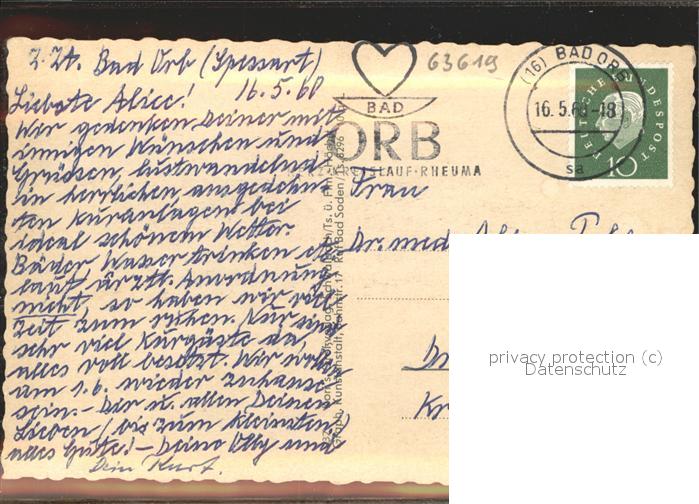 z. Zt. Bad Orb (Spessart)
16.5.60
Liebste Alice!
Wir gedenken Deiner mit
innigen Wünschen und
Grüssen, lustwandelnd
in herrlichen ausgedehn
ten Kuranlagen bei
ideal schönem Wetter.
Bäder Wasser trinken etc
laut ärztl. Anordnung
nicht, so haben wir viel
Zeit zum ruhen. Nur sind
sehr viel Kurgäste da,
alles voll besetzt. Wir wollen
am 1.6. wieder zuhause
sein. - Dir u. allen Deinen
Lieben (bis zum kleinsten)
alles Gute! - Deine Olly und
Dein Kurt.
63619
BAD
ORB
HERZ·KREISLAUF·RHEUMA
(16) BAD ORB
16. 5. 60 -18
sa
DEUTSCHE BUNDESPOST
10
Frau
Dr. med.
privacy protection (c)
Datenschutz